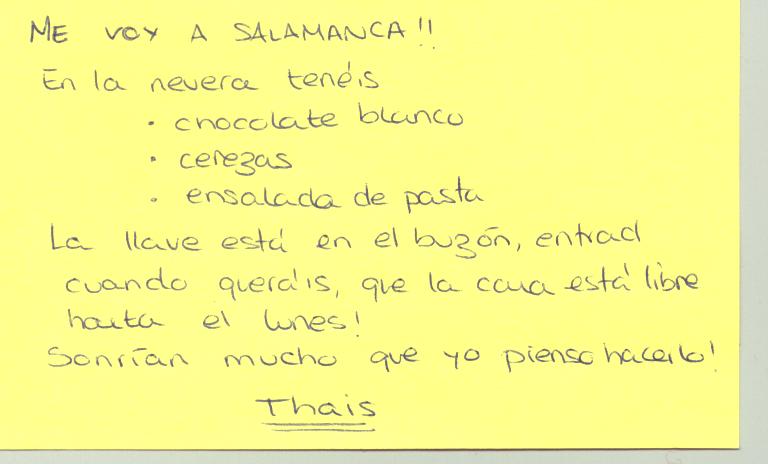 ME VOY A SALAMANCA!!
En la nevera tenéis
· chocolate blanco
· cerezas
· ensalada de pasta
La llave está en el buzón, entrad
cuando queráis, que la casa está libre
hasta el lunes!
Sonrían mucho que yo pienso hacerlo!
Thais